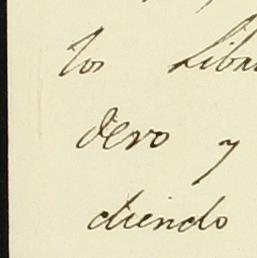 los Liba
dero y
diendo